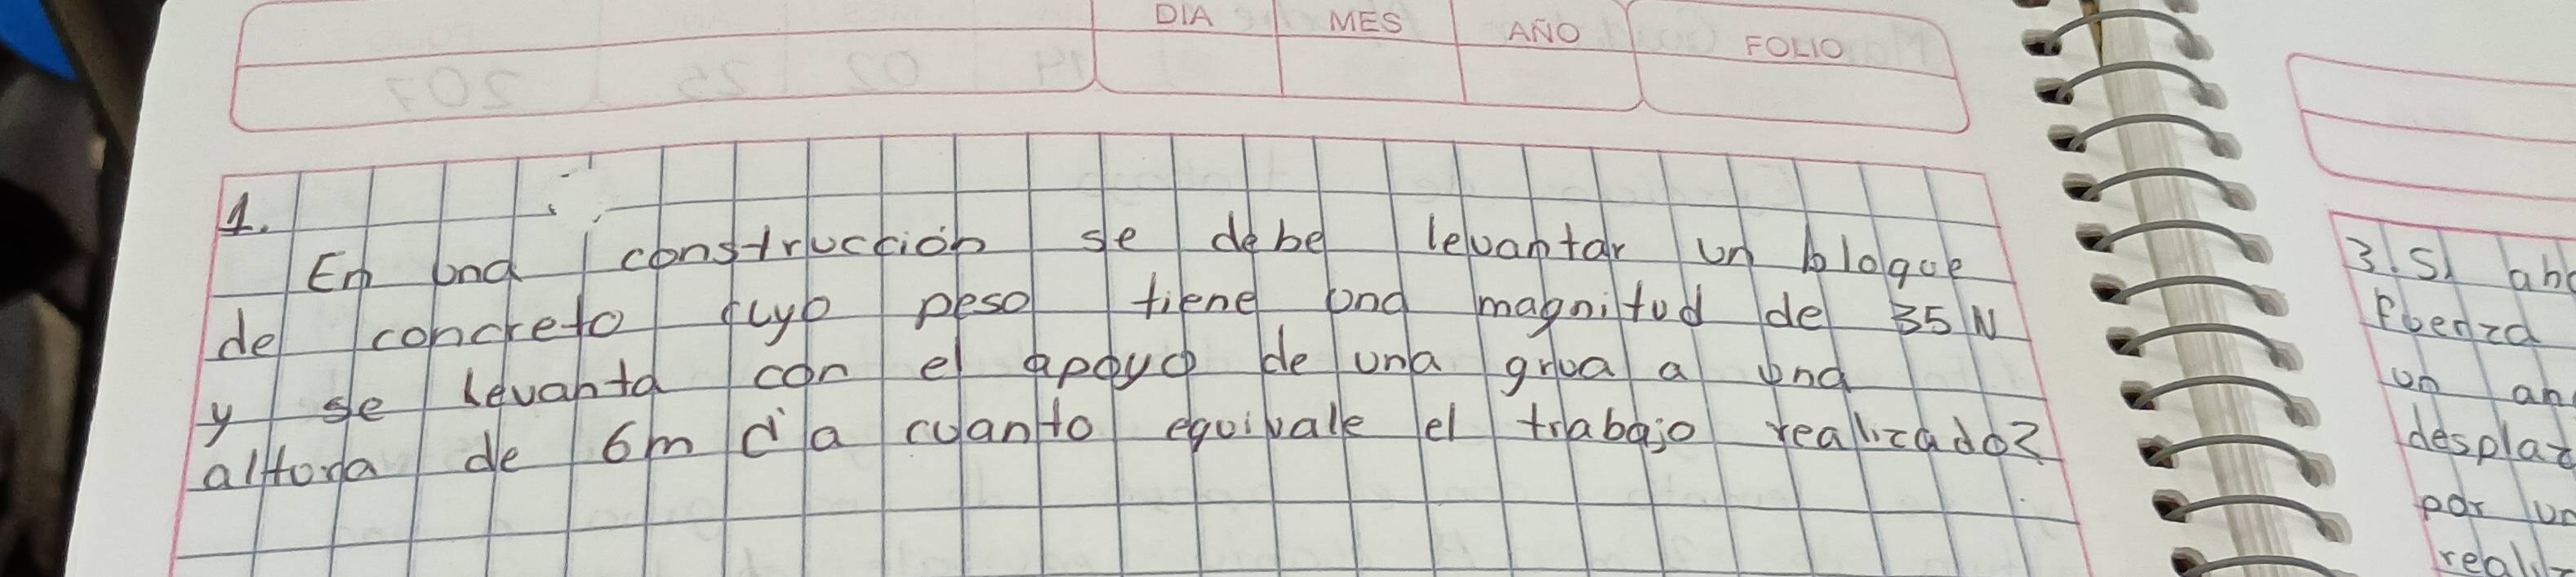 DIA MES AÑO FOLIO
1.
En una construcción se debe levantar un bloque
de concreto cuyo peso tiene una magnitud de 35 N
y se levanta con el apoyo de una grua a una
altura de 6m ¿ a cuanto equivale el trabajo realizado?
3. Si
fuerza
un
desplaz
por un
realiz